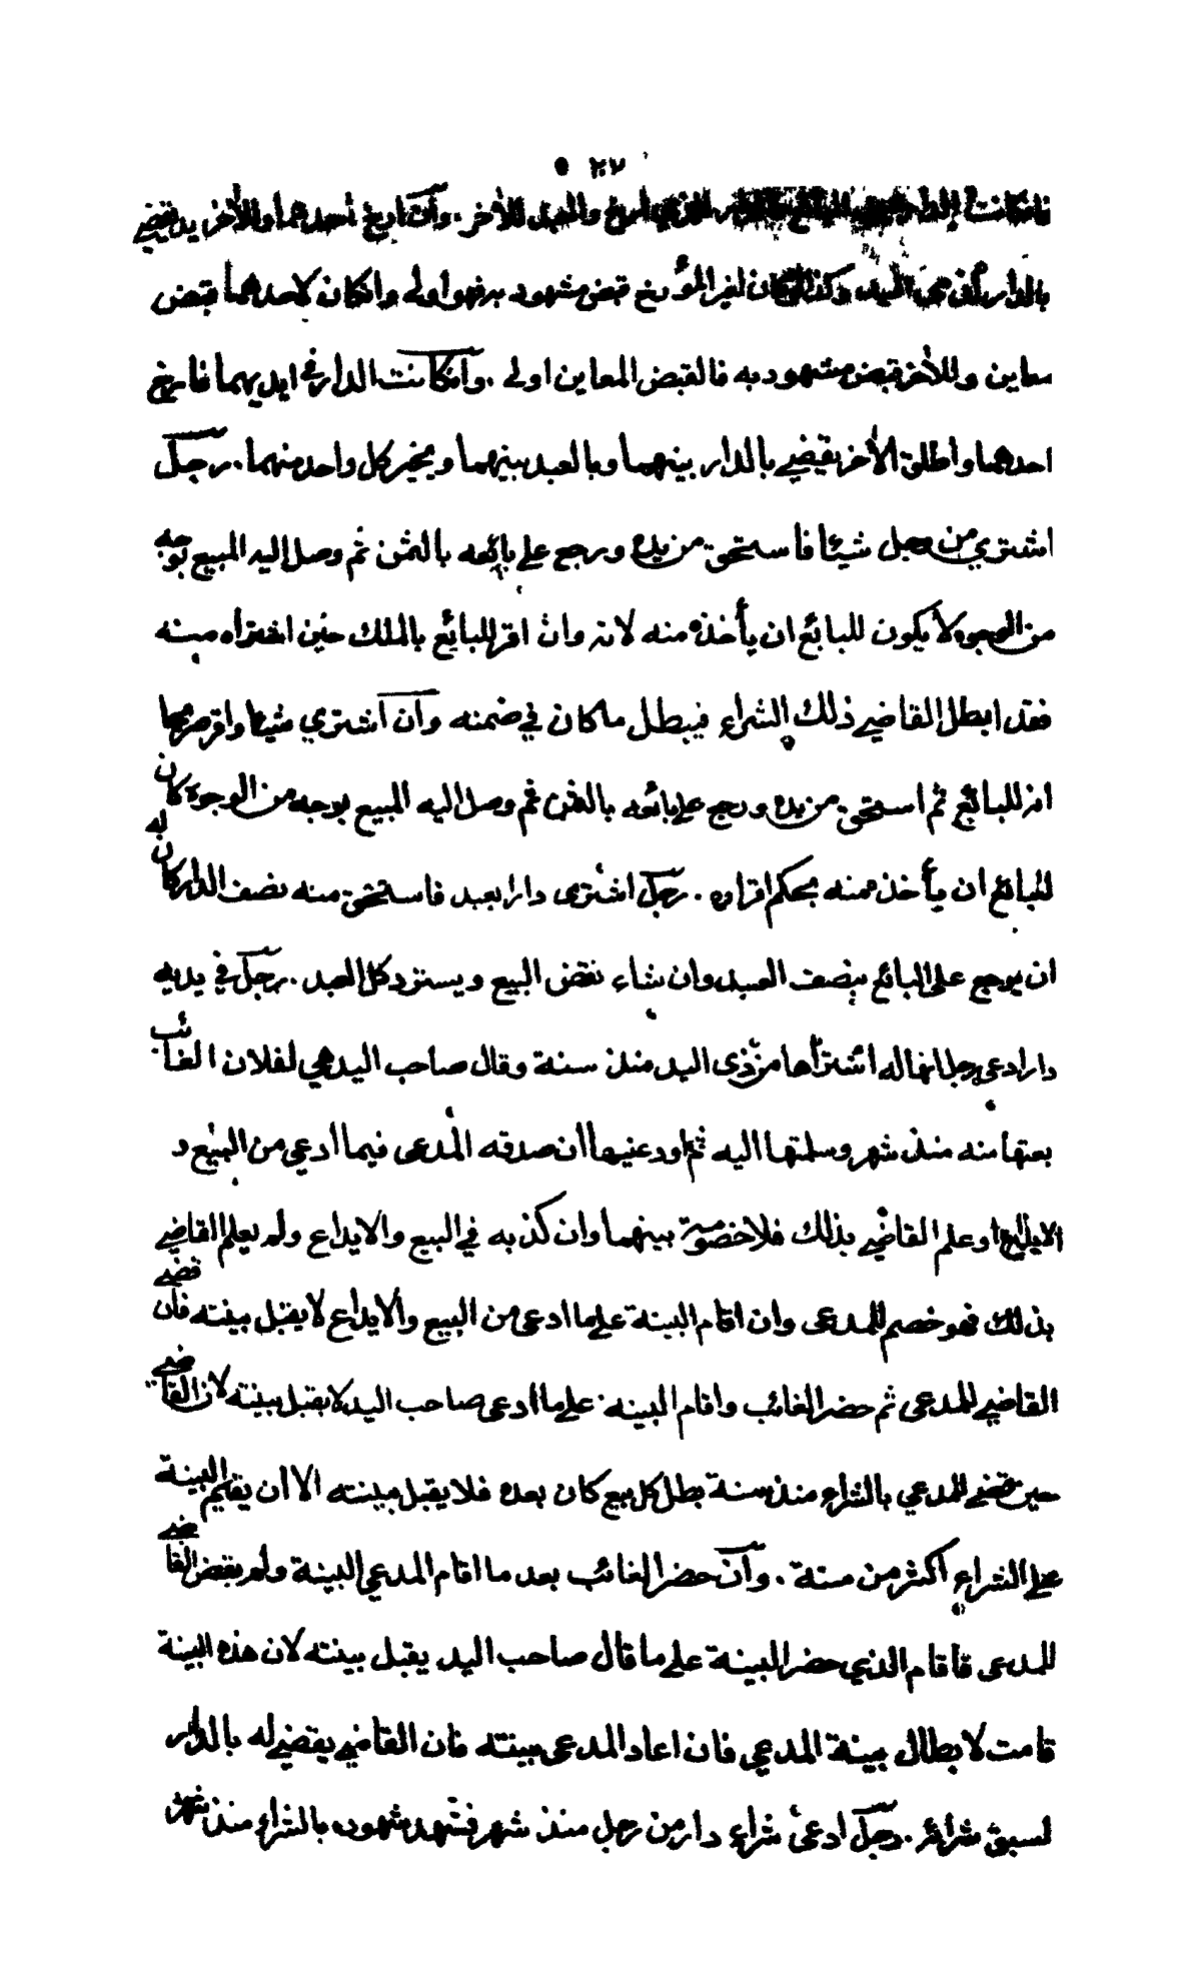 ٢٠٧
فان كانت الدار في يد البائع يقضى بالدار للذي ارخ والعبد للآخر . وان ارخ أحدهما وللآخر يد يقضى
بالدار لذي اليد وكذا لو كان لغير المؤرخ قبض مشهود به فهو اولى وان كان لاحدهما قبض
معاين وللآخر قبض مشهود به فالقبض المعاين اولى . وان كانت الدار في ايديهما فارخ
احدهما واطلق الآخر يقضي بالدار بينهما وبالعبد بينهما ويخير كل واحد منهما . رجل
اشتري من رجل شيئا فاستحق من يده ورجع على بائعه بالثمن ثم وصل اليه المبيع بوجه
من الوجوه لا يكون للبائع ان يأخذه منه لانه وان اقر للبائع بالملك حين اشتراه منه
فقد ابطل القاضي ذلك الشراء فيبطل ما كان في ضمنه وان اشتري شيئا واقر صريحا
انه للبائع ثم استحق من يده ورجع على بائعه بالثمن ثم وصل اليه المبيع بوجه من الوجوه كان
للبائع ان يأخذ منه بحكم اقراره . رجل اشترى دارا بعبد فاستحق منه نصف الدار كان له
ان يرجع على البائع بنصف العبد وان شاء نقض البيع ويسترد كل العبد . رجل في يديه
دار ادعى رجل انها له اشتراها من ذى اليد منذ سنة وقال صاحب اليد هي لفلان الغائب
بعتها منه منذ شهر وسلمتها اليه ثم اودعنيها ان صدقه المدعى فيما ادعي من البيع و
الايداع او علم القاضي بذلك فلا خصومة بينهما وان كذبه في البيع والايداع ولم يعلم القاضي
بذلك فهو خصم للمدعى وان اقام البينة على ما ادعى من البيع والايداع لا يقبل بينته فان قضى
القاضي للمدعى ثم حضر الغائب واقام البينة على ما ادعى صاحب اليد لا يقبل بينته لان القاضي
حين قضى للمدعي بالشراء منذ سنة بطل كل بيع كان بعده فلا يقبل بينته الا ان يقيم البينة
على الشراء اكثر من سنة . وان حضر الغائب بعد ما اقام المدعي البينة ولم يقض القاضي
للمدعى فاقام الذي حضر البينة على ما قال صاحب اليد يقبل بينته لان هذه البينة
قامت لابطال بينة المدعي فان اعاد المدعى بينته فان القاضي يقضي له بالدار
لسبق شرائه . رجل ادعى شراء دار من رجل منذ شهر فشهد شهوده بالشراء منذ شهر